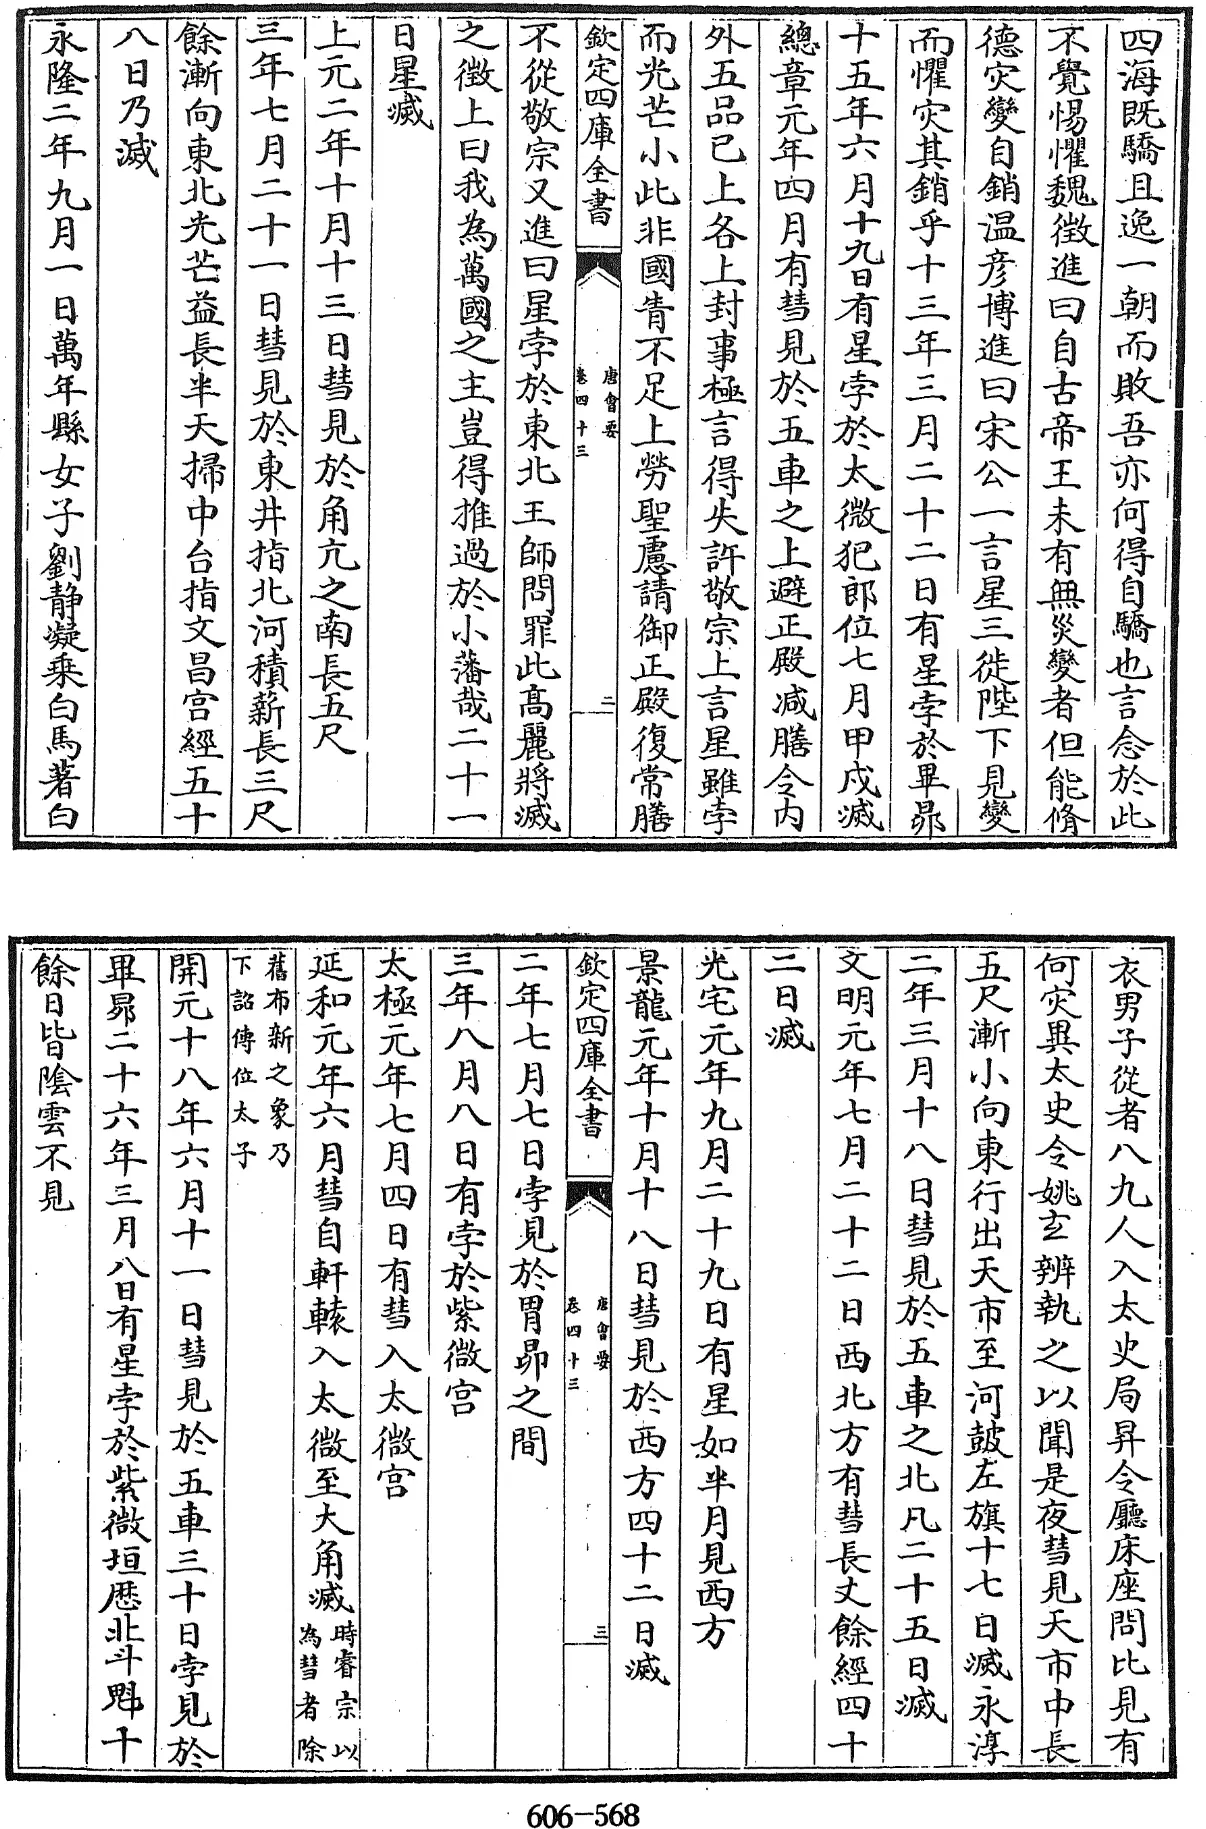 四海既驕且逸一朝而敗吾亦何得自驕也言念於此
不覺惕懼魏徴進曰自古帝王未有無災變者但能脩
德灾變自銷温彦博進曰宋公一言星三徙陛下見變
而懼灾其銷乎十三年三月二十二日有星孛於畢昴
十五年六月十九日有星孛於太微犯郎位七月甲戍滅
總章元年四月有彗見於五車之上避正殿减膳令内
外五品已上各上封事極言得失許敬宗上言星雖孛
而光芒小此非國眚不足上勞聖慮請御正殿復常膳
欽定四庫全書
唐會要
卷四十三
二
不從敬宗又進曰星孛於東北王師問罪此髙麗將滅
之徴上曰我為萬國之主豈得推過於小藩哉二十一
日星滅
上元二年十月十三日彗見於角亢之南長五尺
三年七月二十一日彗見於東井指北河積薪長三尺
餘漸向東北光芒益長半天掃中台指文昌宫經五十
八日乃滅
永隆二年九月一日萬年縣女子劉静凝乗白馬著白
衣男子從者八九人入太史局昇令廳床座問比見有
何灾異太史令姚玄辨執之以聞是夜彗見天市中長
五尺漸小向東行出天市至河鼓左旗十七日滅永淳
二年三月十八日彗見於五車之北凡二十五日滅
文明元年七月二十二日西北方有彗長丈餘經四十
二日滅
光宅元年九月二十九日有星如半月見西方
景龍元年十月十八日彗見於西方四十二日滅
欽定四庫全書
唐會要
卷四十三
三
二年七月七日孛見於胃昴之間
三年八月八日有孛於紫微宫
太極元年七月四日有彗入太微宫
延和元年六月彗自軒轅入太微至大角滅時睿宗以
為彗者除
舊布新之象乃
下詔傳位太子
開元十八年六月十一日彗見於五車三十日孛見於
畢昴二十六年三月八日有星孛於紫微垣歴北斗魁十
餘日皆陰雲不見
606-568